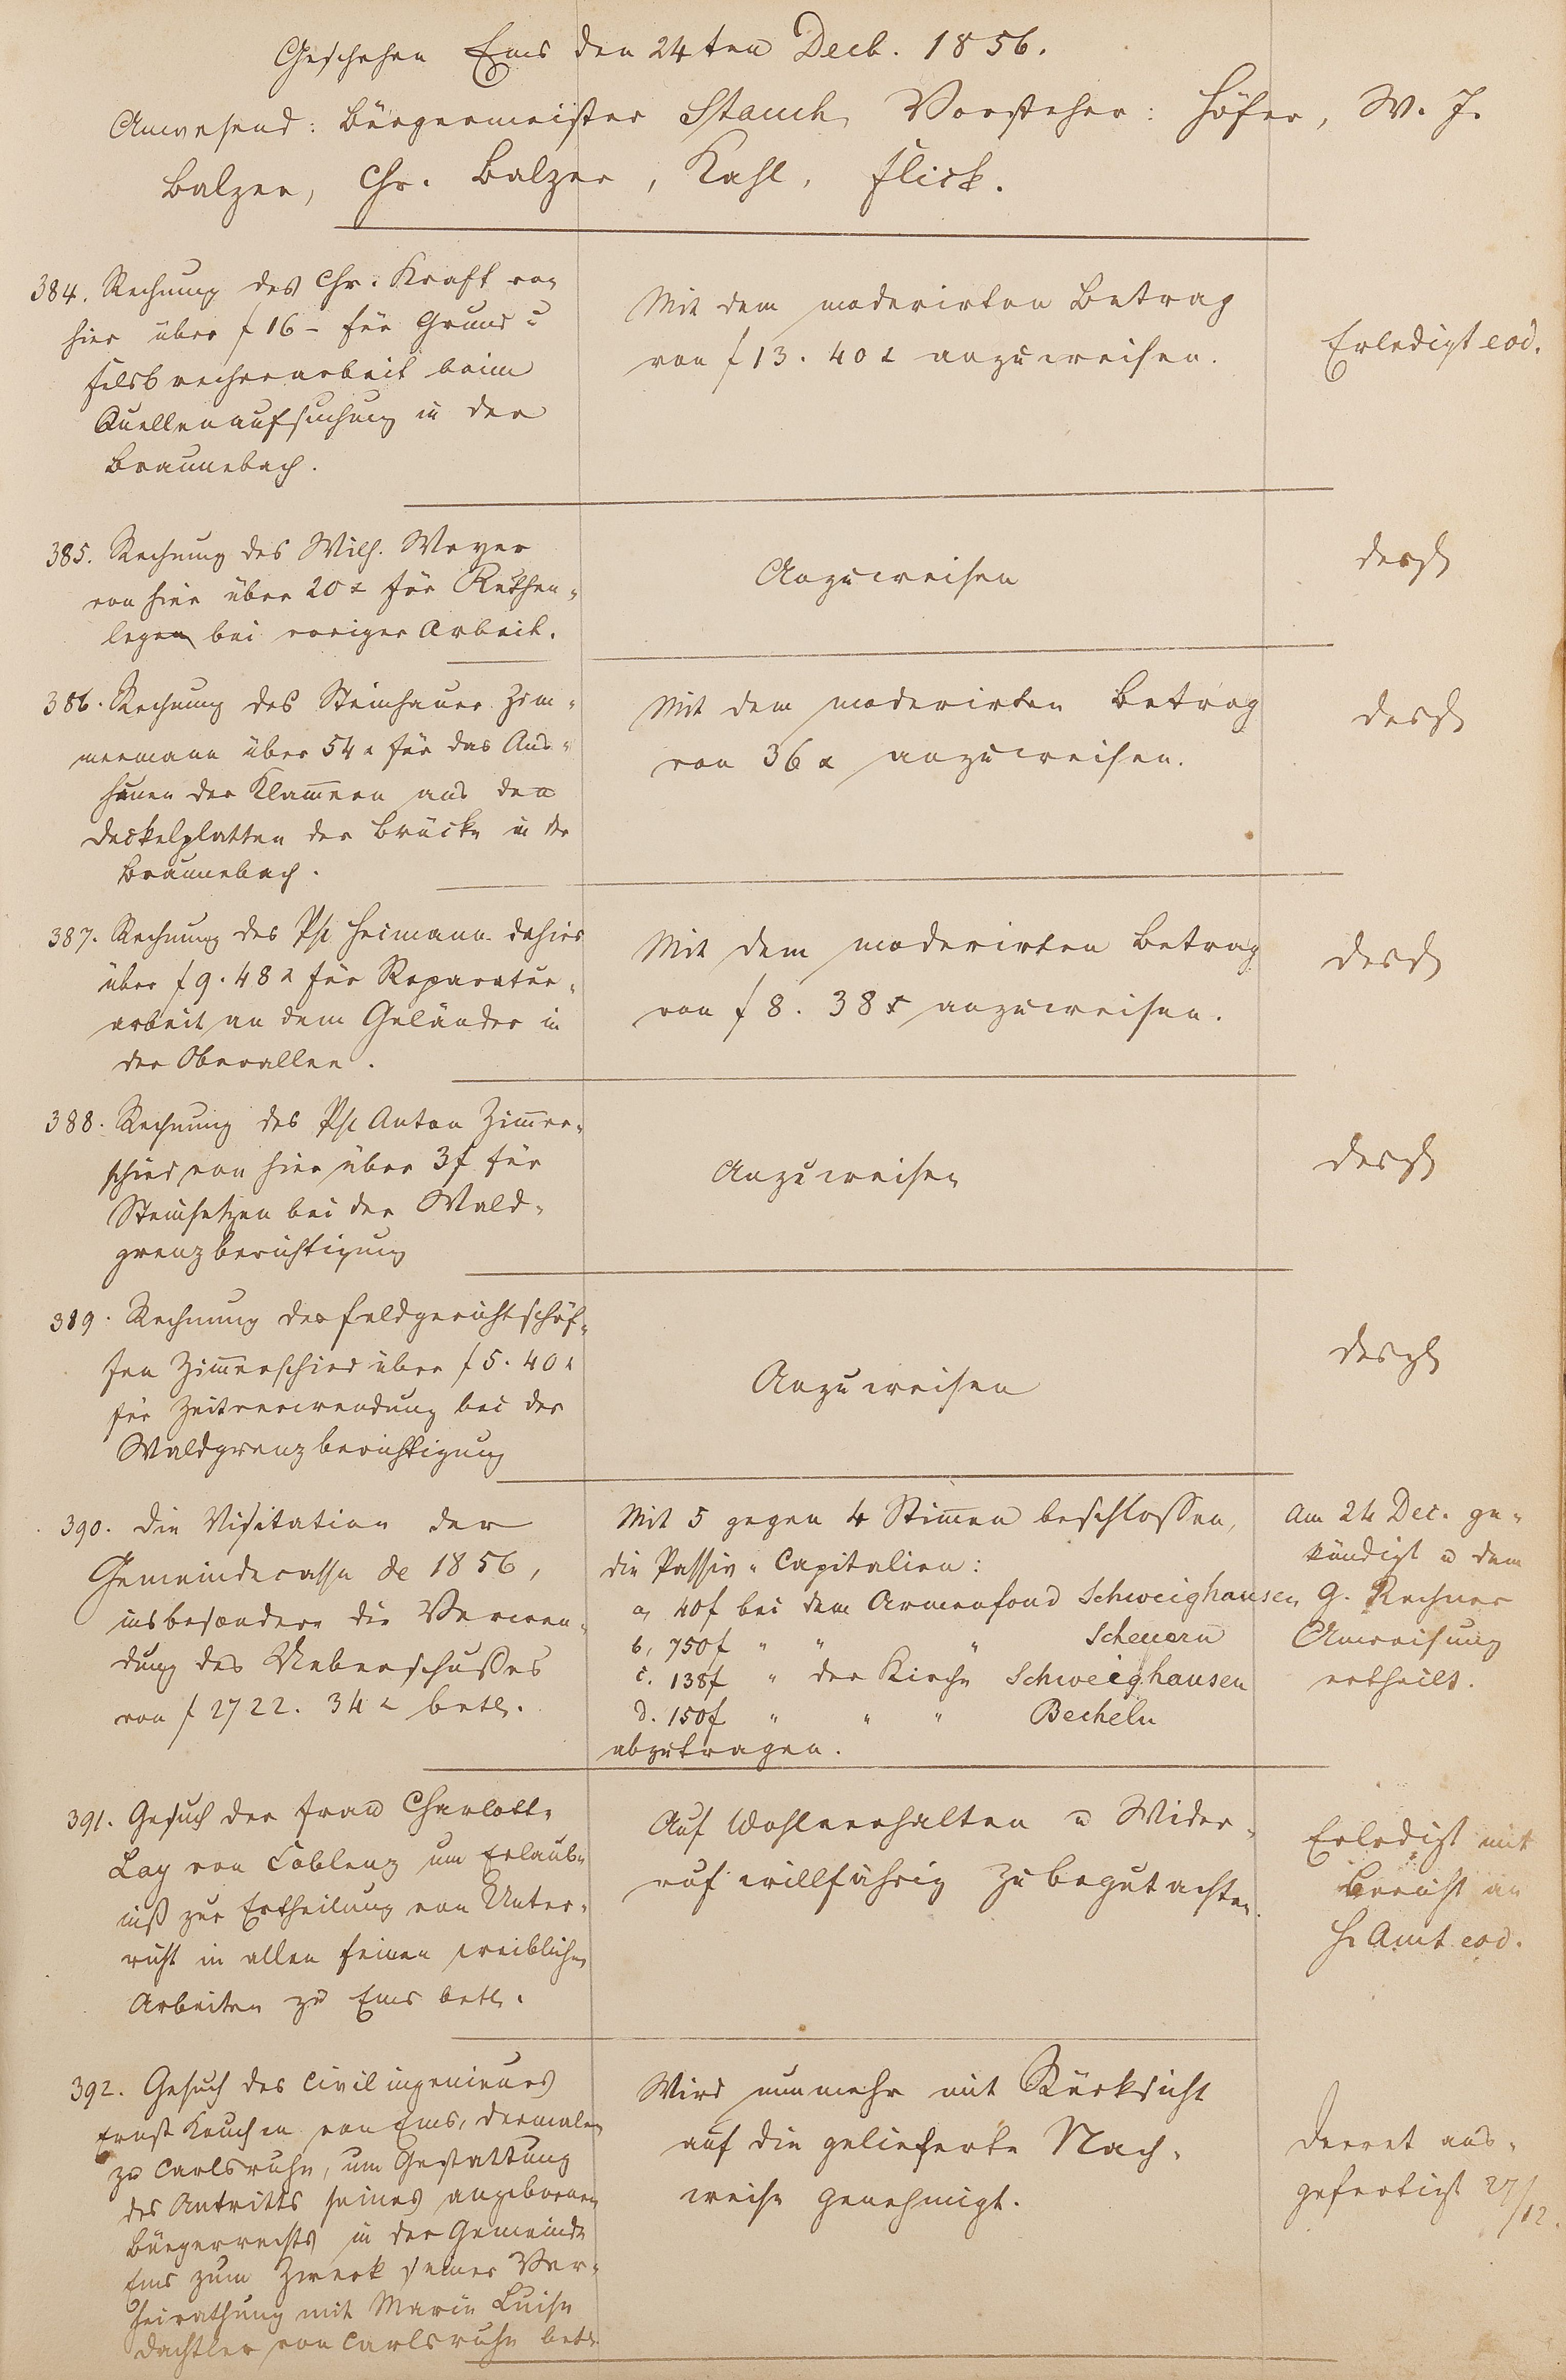 Geschehen Ems den 24ten Decb. 1856.
Anwesend: Bürgermeister Stauch, Vorsteher: Höfer, W. J.
Balzer, Chr. Balzer, Kahl, Flick.
384. Rechnung des Chr. Kraft von
hier über f 16 - für Grund u
Felsbrecherarbeit beim
Quellenaufsuchung in der
Braunebach.
Mit dem moderirten Betrag
von f 13. 40 x anzuweisen.
Erledigt eod.
385. Rechnung des Wilh. Weyer
von hier über 20 x für Ruthen-
legen bei voriger Arbeit.
Anzuweisen
desgl
386. Rechnung des Steinhauer Zim-
mermann über 54 x für das Aus-
hauen der Klam̅ern aus den
Deckelplatten der Brücke in der
Braunebach.
Mit dem moderirten Betrag
von 36 x anzuweisen.
desgl
387. Rechnung des Ph Heimann dahier
über f 9. 48 x für Reparatur-
arbeit an dem Geländer in
der Oberallee.
Mit dem moderirten Betrag
von f 8. 38 x anzuweisen.
desgl
388. Rechnung des Ph Anton Zim̅er-
schied von hier über 3 f für
Steinsetzen bei der Wald-
grenzberichtigung
Anzuweisen
desgl
389. Rechnung der Feldgerichtschöf-
fen Zim̅erschied über f 5. 40 x
für Zeitverwendung bei der
Waldgrenzberichtigung
Anzuweisen
desgl
390. Die Visitation der
Gemeindecasse de 1856,
insbesondere die Verwen-
dung des Ueberschußes
von f 2722. 34 x betr.
Mit 5 gegen 4 Stim̅en beschlossen,
die Passiv-Capitalien:
a, 40 f bei dem Armenfond Schweighausen
b, 750 f " " " Scheuern
c. 138 f " der Kirche Schweighausen
d. 150 f " " " Becheln
abzutragen.
Am 24 Dec. ge-
kündigt u dem
G. Rechner
Anweisung
ertheilt.
391. Gesuch der Frau Charlotte
Lay von Coblenz um Erlaub-
niß zur Ertheilung von Unter-
richt in allen feinen weiblichen
Arbeiten zu Ems betr.
Auf Wohlverhalten u Wider-
ruf willfährig zu begutachten.
Erledigt mit
Bericht an
H. Amt eod.
392. Gesuch des Civilingenieurs
Ernst Kauchen von Ems, dermalen
zu Carlsruhe, um Gestattung
des Antritts seines angebornen
Bürgerrechts in der Gemeinde
Ems zum Zweck seiner Ver-
heirathung mit Marie Luise
Dachtler von Carlsruhe betr.
Wird nunmehr mit Rücksicht
auf die gelieferte Nach-
weise genehmigt.
Decret aus-
gefertigt 27/12.